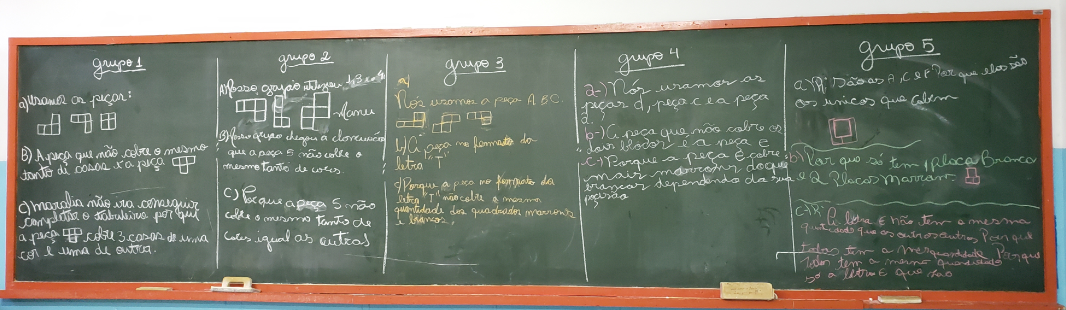 grupo 1
a) Usamos as peças:
B) A peça que não cobre o mesmo
tanto di casas é a peça
C) marcelia não ira conseguir
completar o tabuleiro por que
a peça cobre 3 casas de uma
cor e uma de outra.
grupo 2
A) Nosso grupo utilizou 1,3 e o 4
B) Nosso grupo chegou a
que a peça 5 não cobre o
mesmo tanto de cores.
C) Porque a peça 5 não
cobre o mesmo tanto de
cores igual as outras
grupo 3
a)
Nos usamos a peça A B C.
b) A peça no formato da
letra "T"
c) Porque a peça no formato da
letra "T" não cobre o mesmo
quantidade dos quadrados marrons
e brancos.
grupo 4
a-) Nós usamos as
peças d, peça c e a peça
a.
b-) A peça que não cobre os
é a peça e
c-) Porque a peça E cobre
mais marrom doque
brancas dependendo da sua
posisão
grupo 5
a R: São as A, C e F Por que elas são
os unicos que cabem
b) Por que só tem 1 Placa Branca
e 2 Placas Marram
c-R: A letra E não tem a mesma
que os outros Porque
todas tem a mesma quantidade Porque
todos tem a mesma quantidade
só a letra E que não